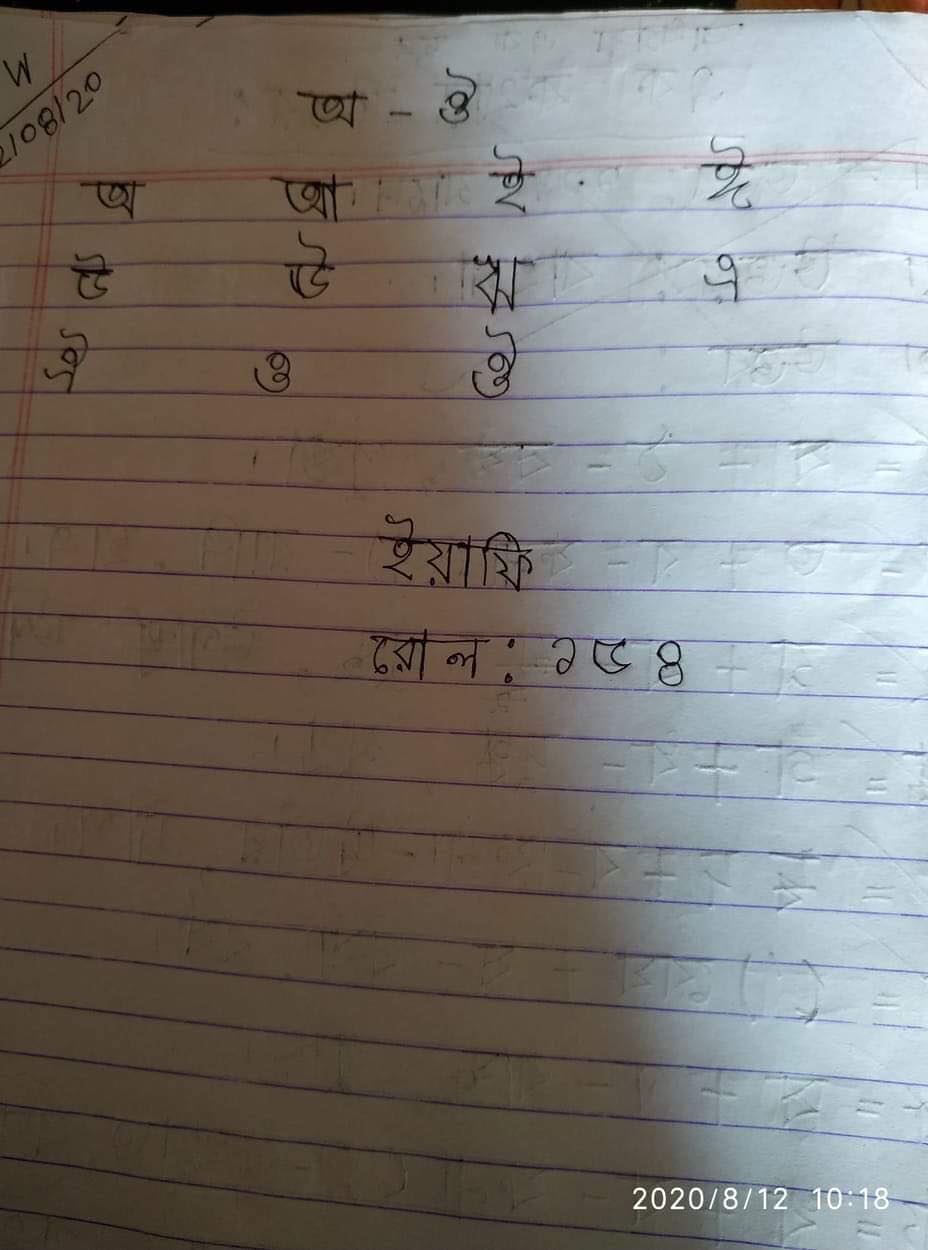 W
2/08/20
অ - ঔ
অ আ ই ঈ
উ ঊ ঋ এ
ঐ ও ঔ
ইয়াফি
রোল : ২৮৪
2020/8/12 10:18